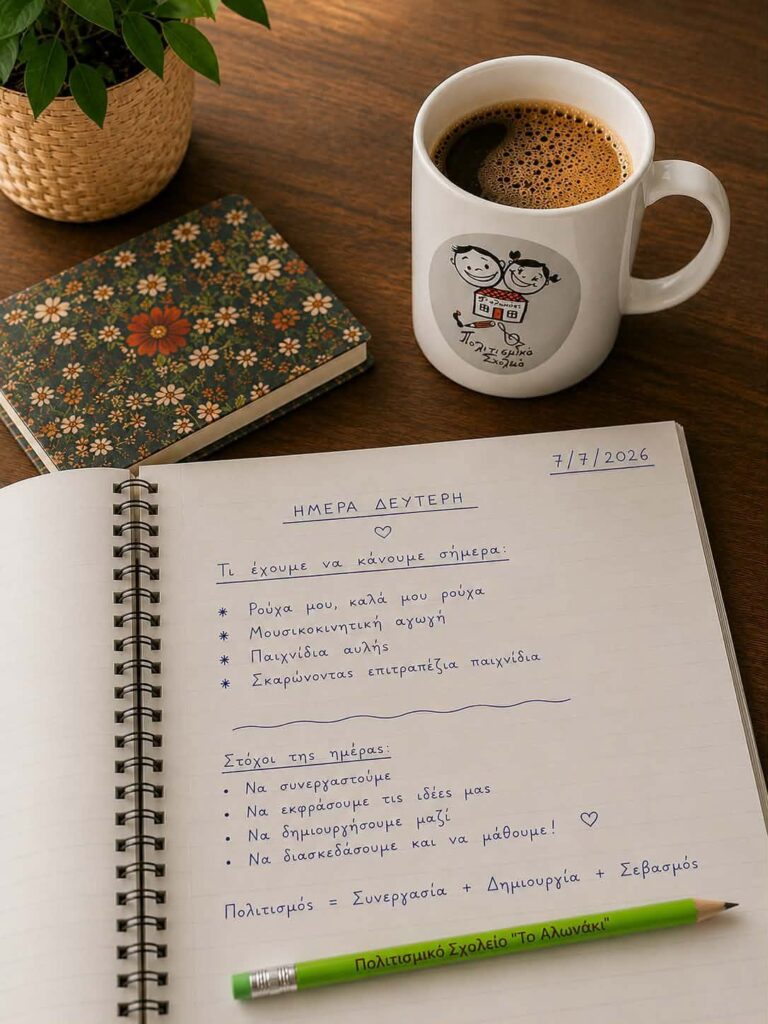 Το αλωνάκι
Πολιτισμικό
Σχολειό
7/7/2026
ΗΜΕΡΑ ΔΕΥΤΕΡΗ
Τι έχουμε να κάνουμε σήμερα:
* Ρούχα μου, καλά μου ρούχα
* Μουσικοκινητική αγωγή
* Παιχνίδια αυλής
* Σκαρώνοντας επιτραπέζια παιχνίδια
Στόχοι της ημέρας:
• Να συνεργαστούμε
• Να εκφράσουμε τις ιδέες μας
• Να δημιουργήσουμε μαζί
• Να διασκεδάσουμε και να μάθουμε!
Πολιτισμός = Συνεργασία + Δημιουργία + Σεβασμός
Πολιτισμικό Σχολείο "Το Αλωνάκι"